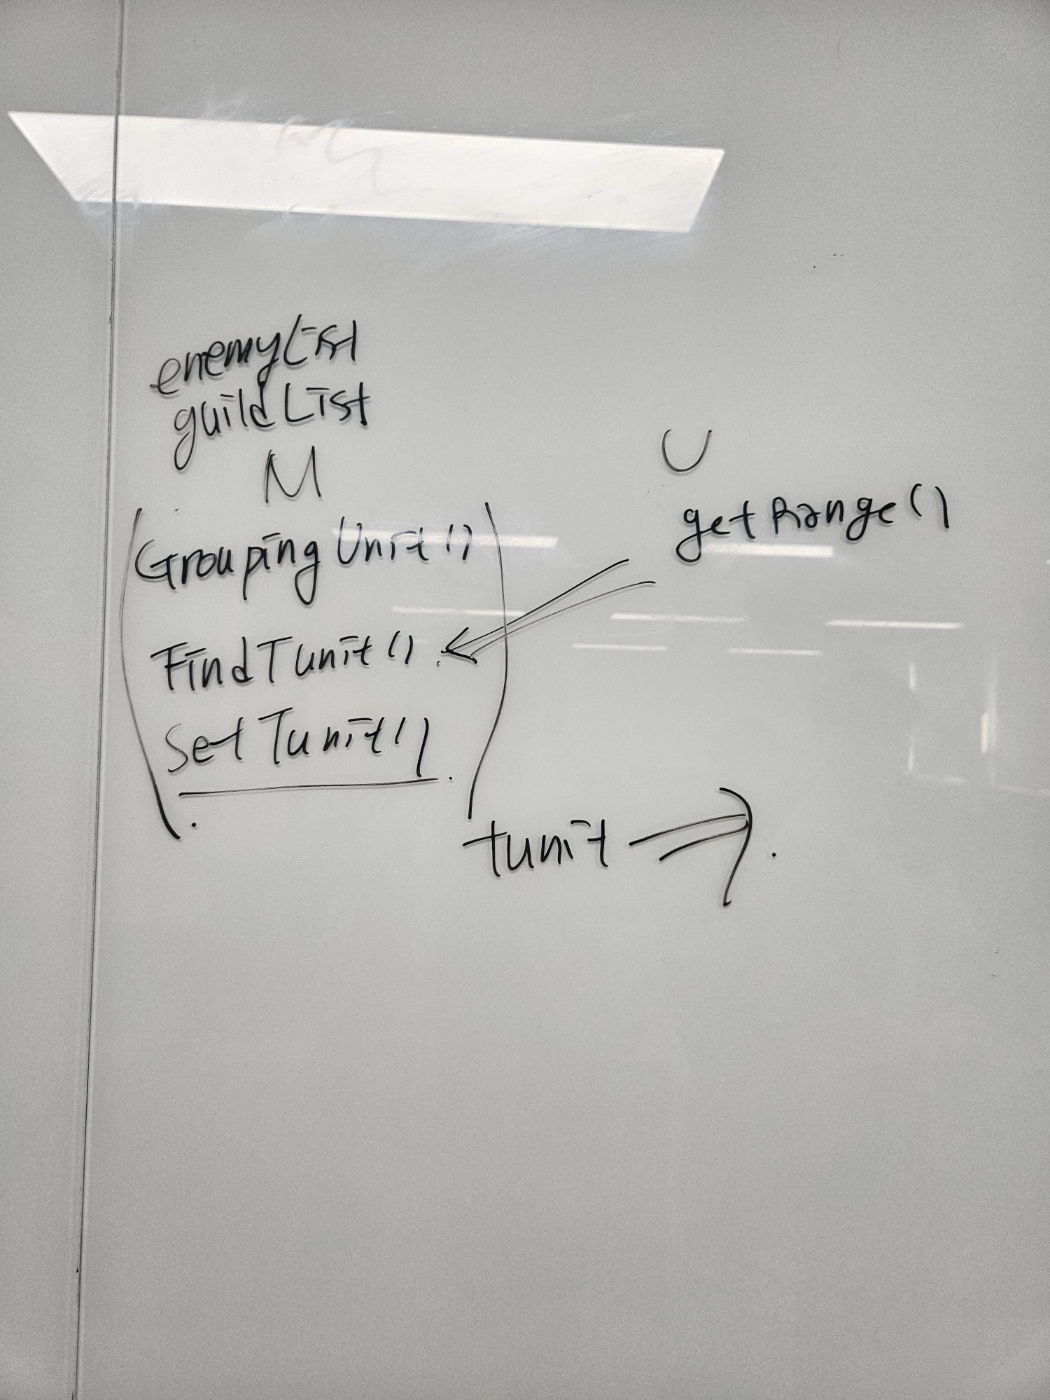 enemyList
guildList
M
GroupingUnit()
FindTunit()
SetTunit()
U
getRange()
tunit